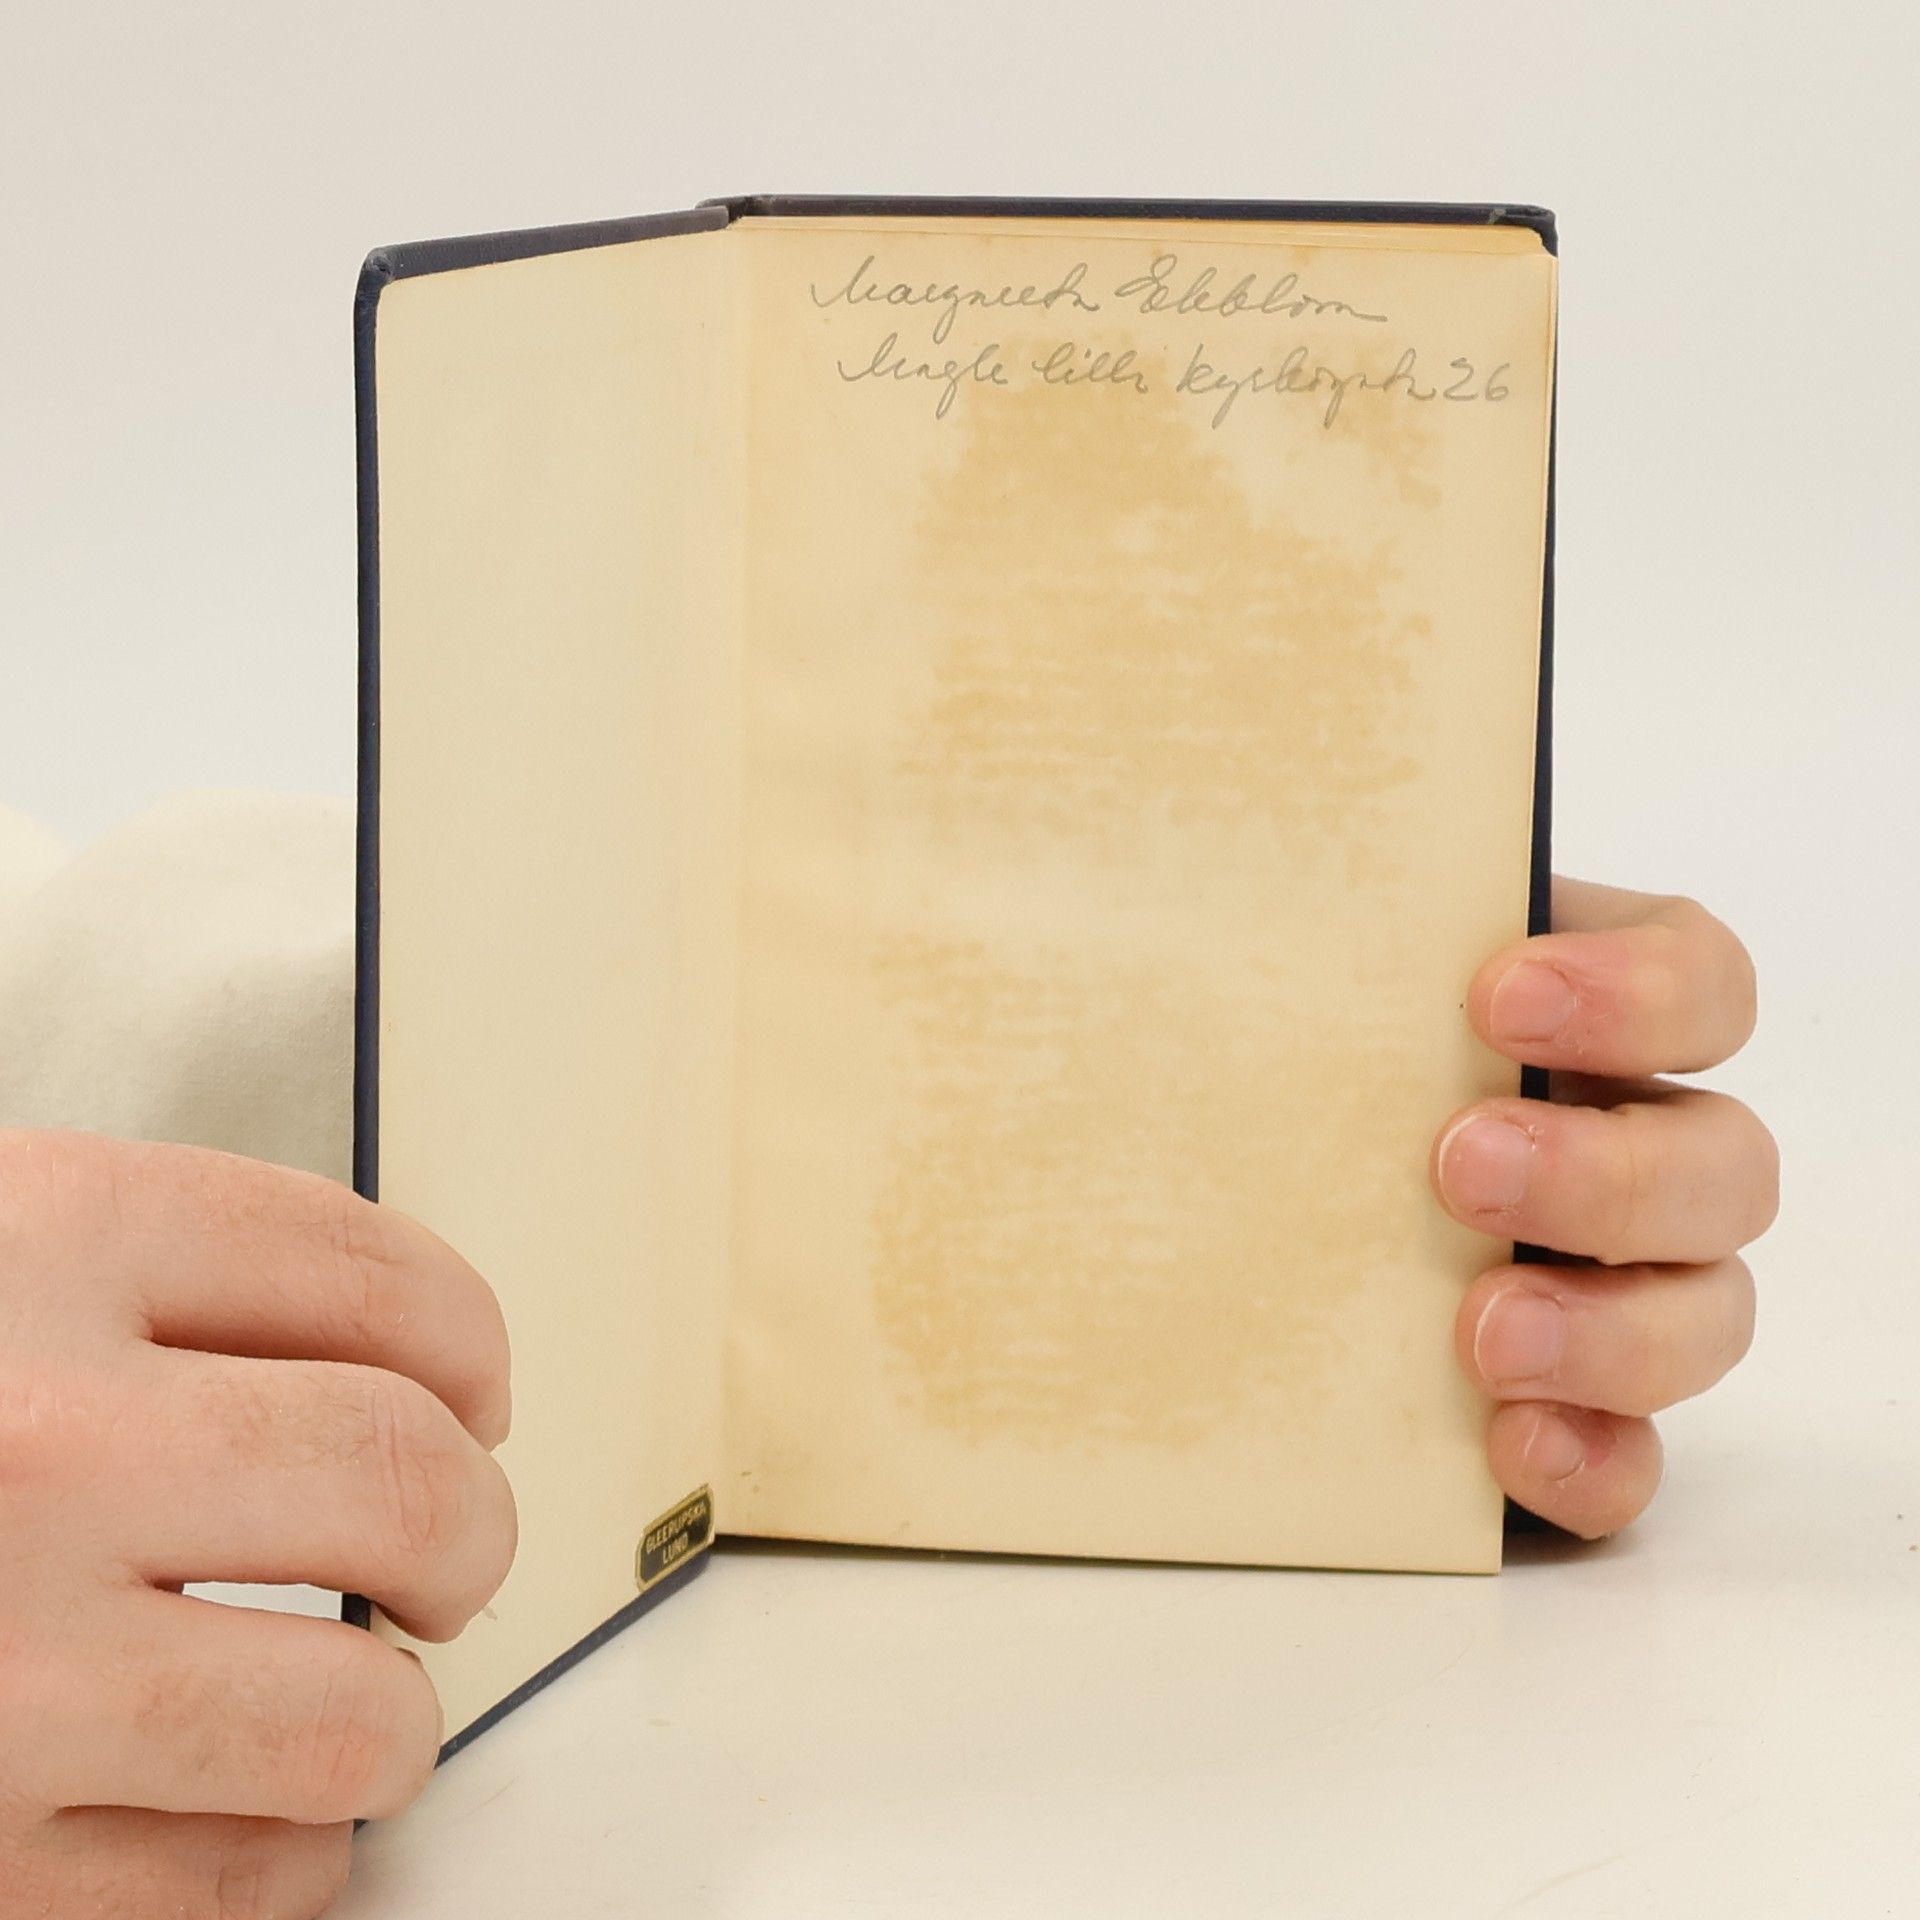 Margareta Ekblom
Magle lilla kyrkogata 26
GLEERUPSKA
LUND